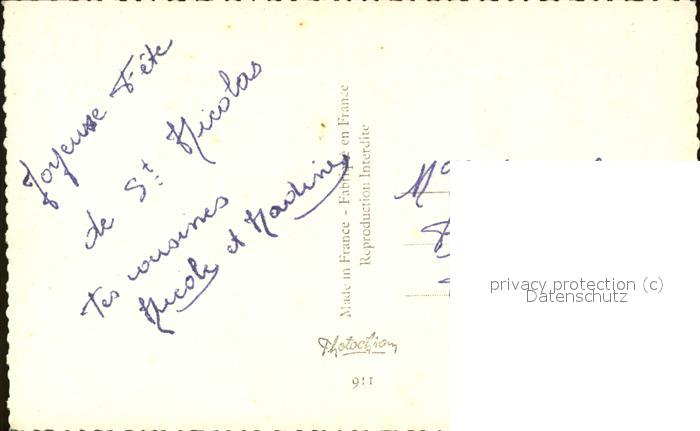 Joyeuse Fête
de St Nicolas
tes cousines
Nicole et Nadine
Made in France - Fabriqué en France
Reproduction Interdite
Photochrom
911
privacy protection (c)
Datenschutz